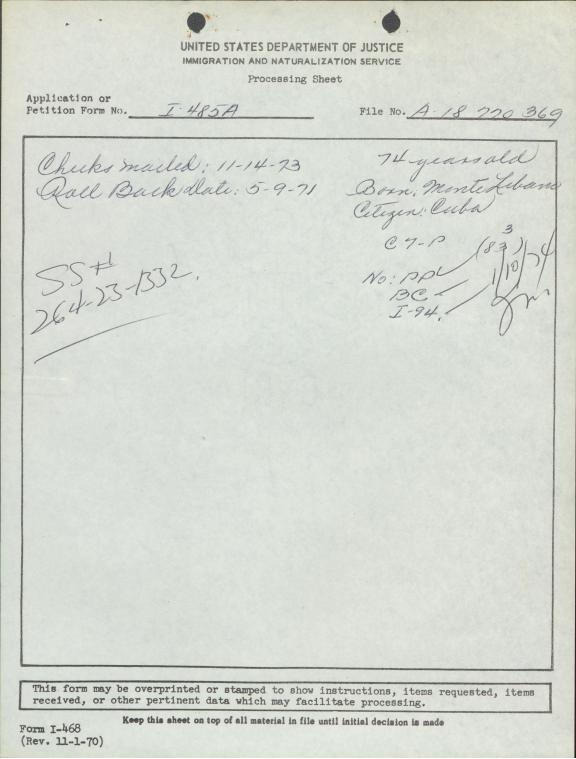 UNITED STATES DEPARTMENT OF JUSTICE
IMMIGRATION AND NATURALIZATION SERVICE
Processing Sheet
Application or
Petition Form No. I-485A
File No. A-18 770 369
Checks mailed: 11-14-73
Roll Back Date: 5-9-71
74 years old
Born: Monte Libano
Citizen: Cuba
C7-P
SS#
264-23-1332.
No: PPL
BC
I-94.
1/10/74
This form may be overprinted or stamped to show instructions, items requested, items
received, or other pertinent data which may facilitate processing.
Keep this sheet on top of all material in file until initial decision is made
Form I-468
(Rev. 11-1-70)